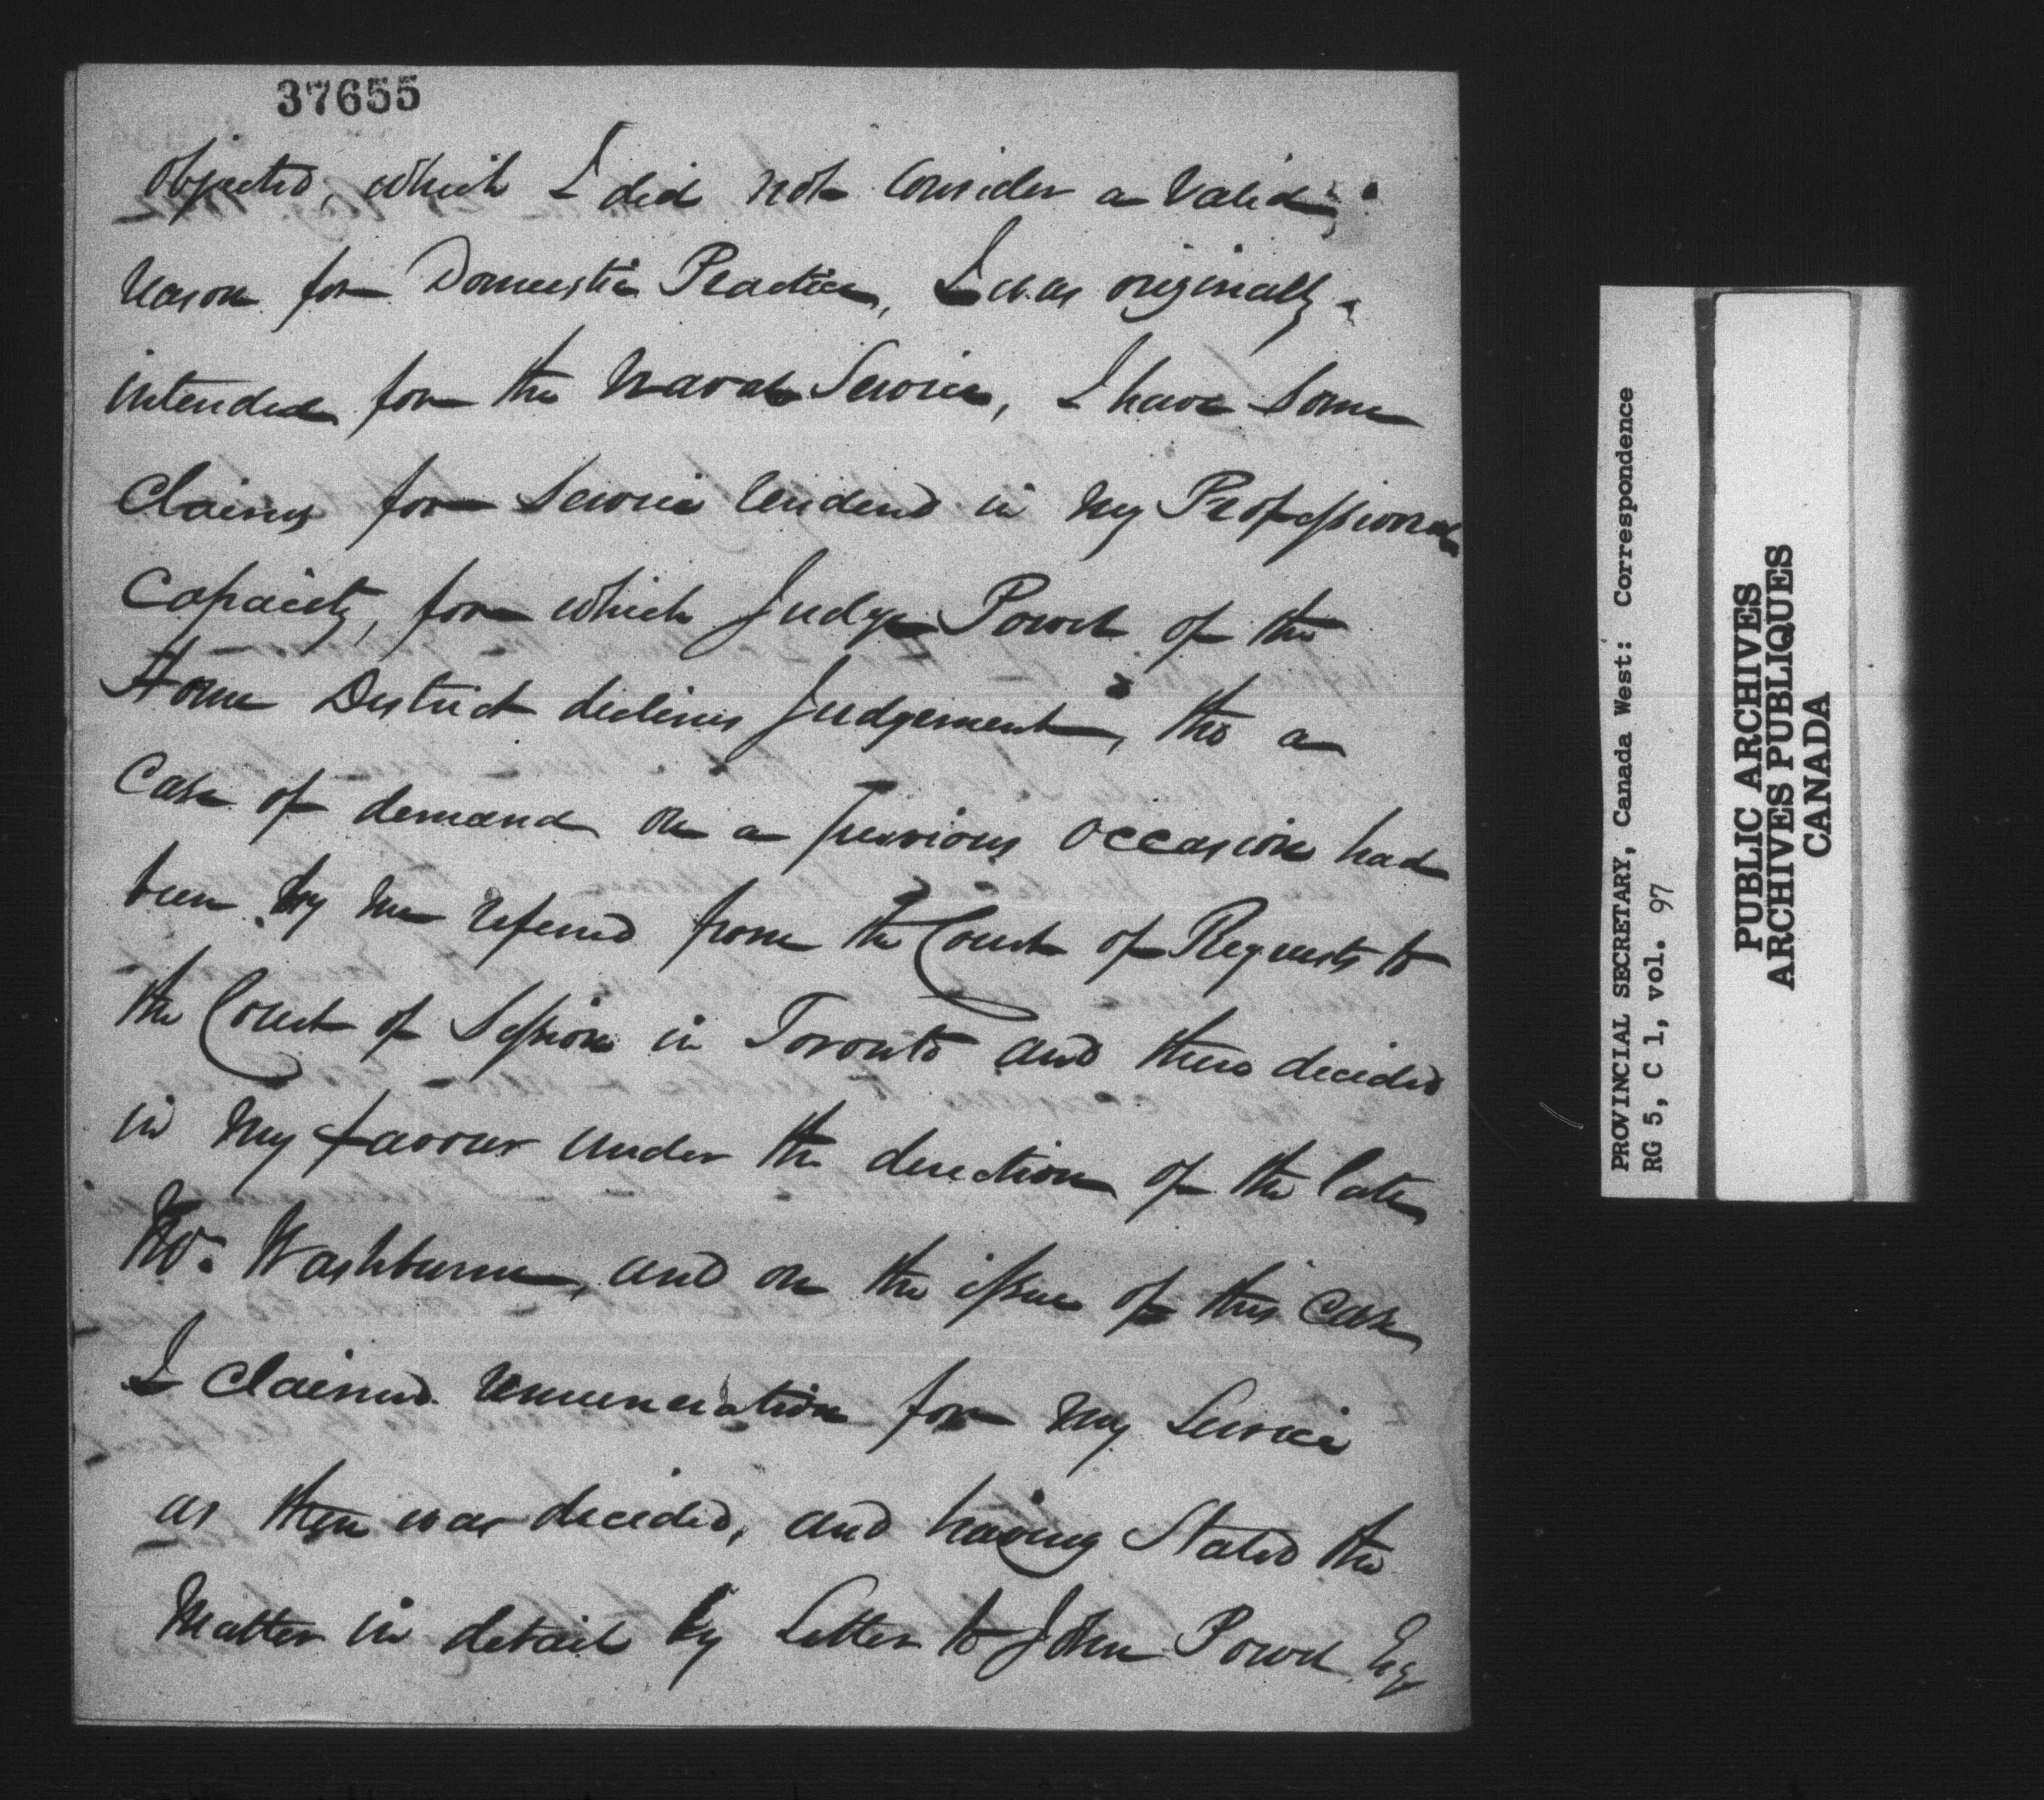 37655
objected, which I did not consider a valid
reason for Domestic Practice, I was originally
intended for the Naval Service, I have some
Claims for Service rendered in my Professional
Capacity, for which Judge Powell of the
Home District declines Judgement, tho a
Case of demand on a previous occasion had
been by me refered from the Court of Requests to
the Court of Session in Toronto and there decided
in my favour under the direction of the late
Washburn, and on the issue of this Case
I claimed remuneration for my Service
as then was decided, and having Stated the
Matter in detail by Letter to John Powell Esq
PROVINCIAL SECRETARY, Canada West: Correspondence
RG 5, C 1, vol. 97
PUBLIC ARCHIVES
ARCHIVES PUBLIQUES
CANADA